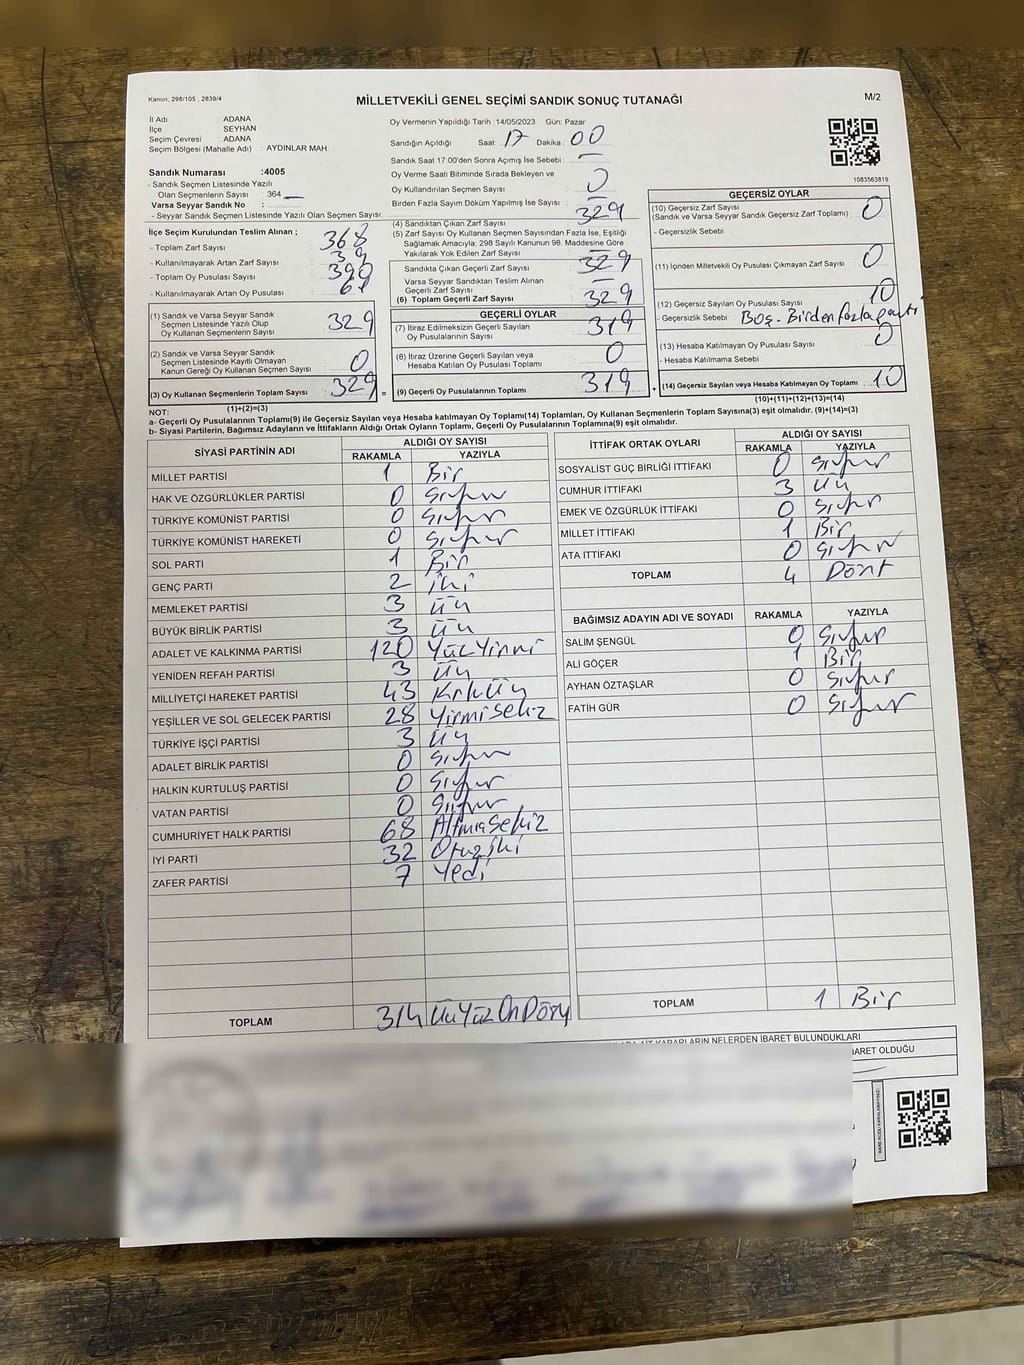 Kanun, 298/105 , 2839/4
MİLLETVEKİLİ GENEL SEÇİMİ SANDIK SONUÇ TUTANAĞI
M/2
İl Adı : ADANA
İlçe : SEYHAN
Seçim Çevresi : ADANA
Seçim Bölgesi (Mahalle Adı) : AYDINLAR MAH.
Sandık Numarası :4005
- Sandık Seçmen Listesinde Yazılı
Olan Seçmenlerin Sayısı : 364
Varsa Seyyar Sandık No :
- Seyyar Sandık Seçmen Listesinde Yazılı Olan Seçmen Sayısı
İlçe Seçim Kurulundan Teslim Alınan ;
- Toplam Zarf Sayısı 368
- Kullanılmayarak Artan Zarf Sayısı 39
- Toplam Oy Pusulası Sayısı 390
- Kullanılmayarak Artan Oy Pusulası 61
(1) Sandık ve Varsa Seyyar Sandık
Seçmen Listesinde Yazılı Olup
Oy Kullanan Seçmenlerin Sayısı 329
(2) Sandık ve Varsa Seyyar Sandık
Seçmen Listesinde Kayıtlı Olmayan
Kanun Gereği Oy Kullanan Seçmen Sayısı 0
(3) Oy Kullanan Seçmenlerin Toplam Sayısı 329 =
(1)+(2)=(3)
Oy Vermenin Yapıldığı Tarih :14/05/2023 Gün: Pazar
Sandığın Açıldığı Saat: 17 Dakika : 00
Sandık Saat 17.00'den Sonra Açılmış İse Sebebi :
Oy Verme Saati Bitiminde Sırada Bekleyen ve
Oy Kullandırılan Seçmen Sayısı : 0
Birden Fazla Sayım Döküm Yapılmış İse Sayısı :
(4) Sandıktan Çıkan Zarf Sayısı 329
(5) Zarf Sayısı Oy Kullanan Seçmen Sayısından Fazla İse, Eşitliği
Sağlamak Amacıyla, 298 Sayılı Kanunun 98. Maddesine Göre
Yakılarak Yok Edilen Zarf Sayısı
Sandıkta Çıkan Geçerli Zarf Sayısı 329
Varsa Seyyar Sandıktan Teslim Alınan
Geçerli Zarf Sayısı
(6) Toplam Geçerli Zarf Sayısı 329
GEÇERLİ OYLAR
(7) İtiraz Edilmeksizin Geçerli Sayılan
Oy Pusulalarının Sayısı 319
(8) İtiraz Üzerine Geçerli Sayılan veya
Hesaba Katılan Oy Pusulası Toplamı 0
(9) Geçerli Oy Pusulalarının Toplamı 319 +
1083563819
GEÇERSİZ OYLAR
(10) Geçersiz Zarf Sayısı
(Sandık ve Varsa Seyyar Sandık Geçersiz Zarf Toplamı) : 0
- Geçersizlik Sebebi :
(11) İçinden Milletvekili Oy Pusulası Çıkmayan Zarf Sayısı : 0
(12) Geçersiz Sayılan Oy Pusulası Sayısı : 10
- Geçersizlik Sebebi : Boş - Birden fazla parti
(13) Hesaba Katılmayan Oy Pusulası Sayısı : 0
- Hesaba Katılmama Sebebi :
(14) Geçersiz Sayılan veya Hesaba Katılmayan Oy Toplamı : 10
(10)+(11)+(12)+(13)=(14)
NOT:
a- Geçerli Oy Pusulalarının Toplamı(9) ile Geçersiz Sayılan veya Hesaba katılmayan Oy Toplamı(14) Toplamları, Oy Kullanan Seçmenlerin Toplam Sayısına(3) eşit olmalıdır. (9)+(14)=(3)
b- Siyasi Partilerin, Bağımsız Adayların ve İttifakların Aldığı Ortak Oyların Toplamı, Geçerli Oy Pusulalarının Toplamına(9) eşit olmalıdır.
SİYASİ PARTİNİN ADI ALDIĞI OY SAYISI
RAKAMLA YAZIYLA
MİLLET PARTİSİ 1 Bir
HAK VE ÖZGÜRLÜKLER PARTİSİ 0 Sıfır
TÜRKİYE KOMÜNİST PARTİSİ 0 Sıfır
TÜRKİYE KOMÜNİST HAREKETİ 0 Sıfır
SOL PARTİ 1 Bir
GENÇ PARTİ 2 İki
MEMLEKET PARTİSİ 3 Üç
BÜYÜK BİRLİK PARTİSİ 3 Üç
ADALET VE KALKINMA PARTİSİ 120 Yüz Yirmi
YENİDEN REFAH PARTİSİ 3 Üç
MİLLİYETÇİ HAREKET PARTİSİ 43 Kırk Üç
YEŞİLLER VE SOL GELECEK PARTİSİ 28 Yirmi Sekiz
TÜRKİYE İŞÇİ PARTİSİ 3 Üç
ADALET BİRLİK PARTİSİ 0 Sıfır
HALKIN KURTULUŞ PARTİSİ 0 Sıfır
VATAN PARTİSİ 0 Sıfır
CUMHURİYET HALK PARTİSİ 68 Altmış Sekiz
İYİ PARTİ 32 Otuz İki
ZAFER PARTİSİ 7 Yedi
TOPLAM 314 Üç Yüz On Dört
İTTİFAK ORTAK OYLARI ALDIĞI OY SAYISI
RAKAMLA YAZIYLA
SOSYALİST GÜÇ BİRLİĞİ İTTİFAKI 0 Sıfır
CUMHUR İTTİFAKI 3 Üç
EMEK VE ÖZGÜRLÜK İTTİFAKI 0 Sıfır
MİLLET İTTİFAKI 1 Bir
ATA İTTİFAKI 0 Sıfır
TOPLAM 4 Dört
BAĞIMSIZ ADAYIN ADI VE SOYADI RAKAMLA YAZIYLA
SALİM ŞENGÜL 0 Sıfır
ALİ GÖÇER 1 Bir
AYHAN ÖZTAŞLAR 0 Sıfır
FATİH GÜR 0 Sıfır
TOPLAM 1 Bir
KARARLARIN NELERDEN İBARET BULUNDUKLARI
BARET OLDUĞU